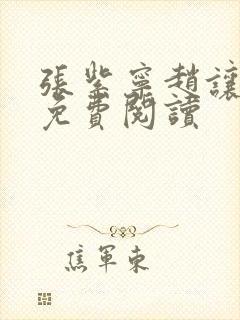 張紫寧趙讓
免費閱讀
焦軍東